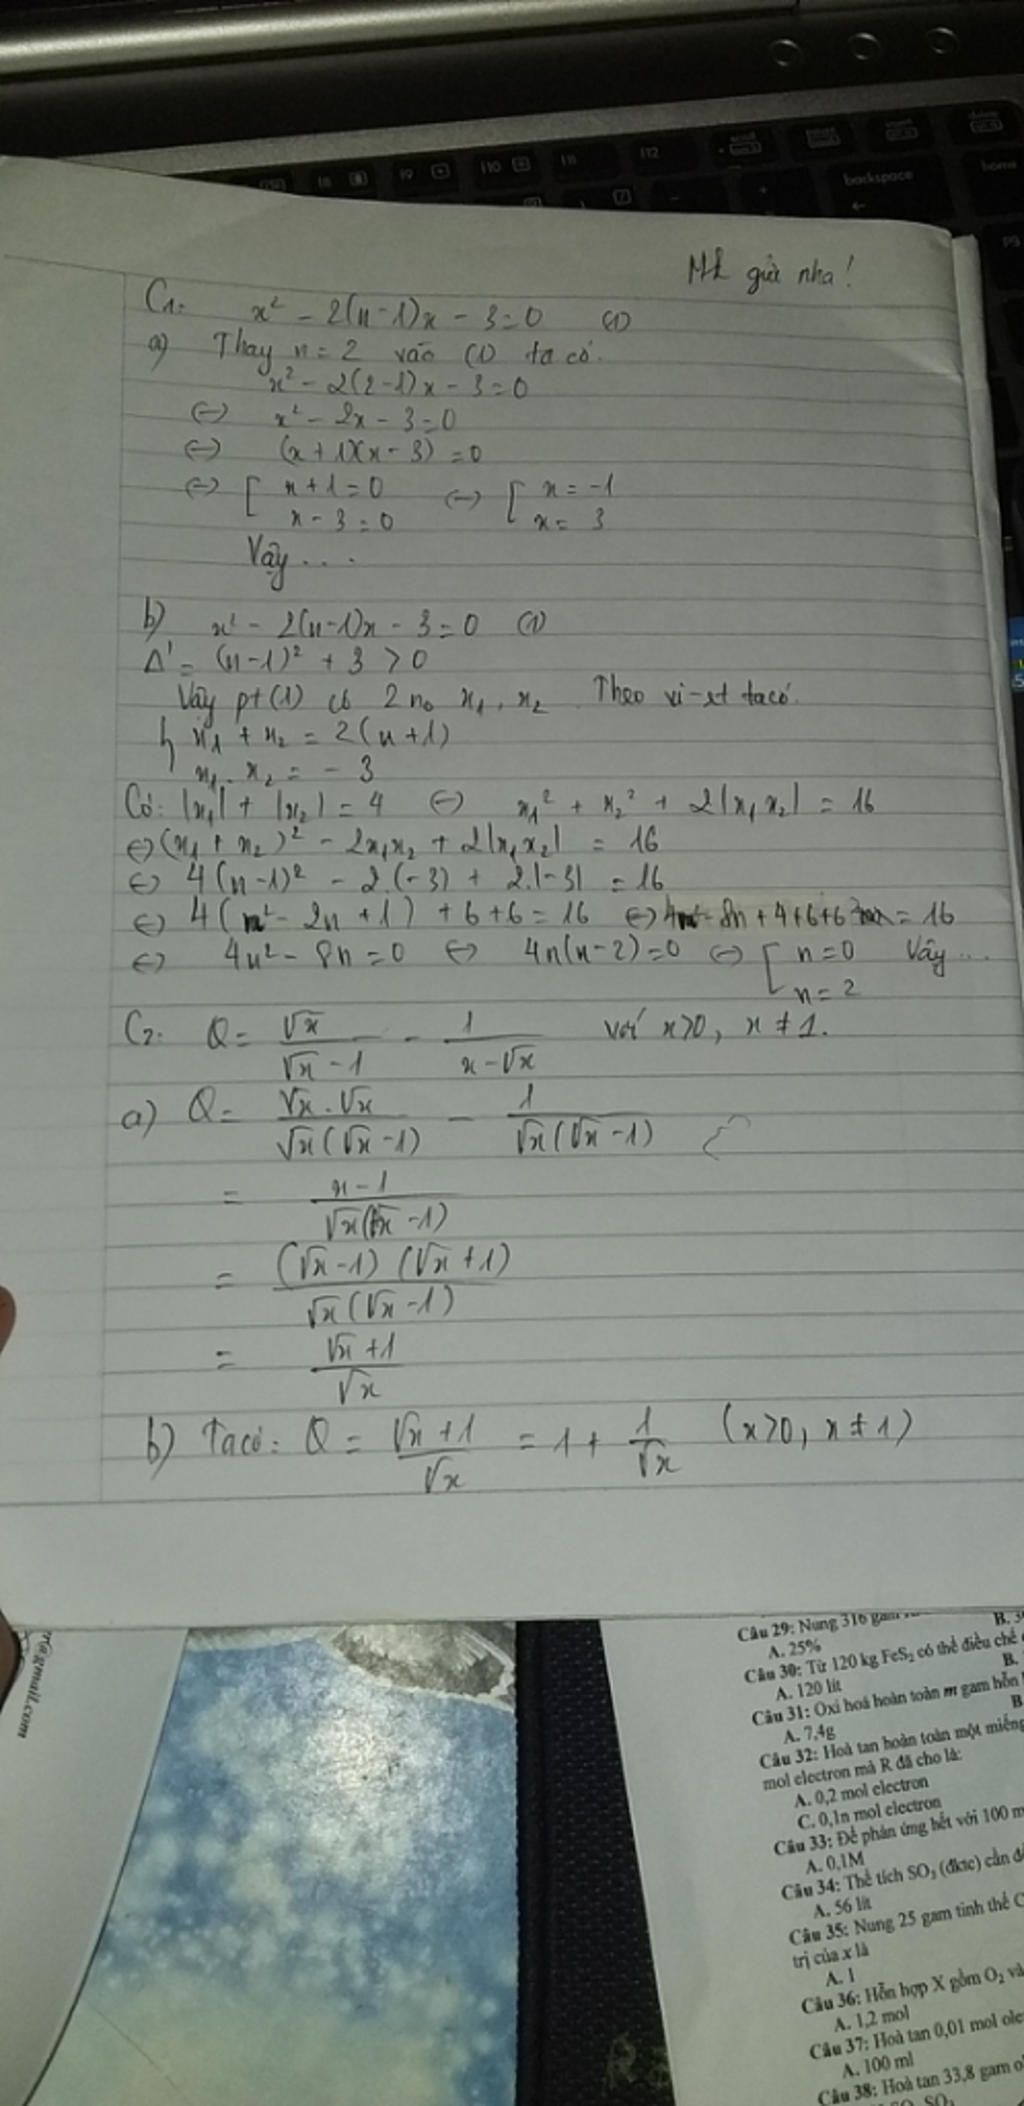 F9
F10
F11
F12
backspace
home
Mk gửi nha!
C1. x² - 2(n-1)x - 3 = 0 (1)
a) Thay n = 2 vào (1) ta có.
x² - 2(2-1)x - 3 = 0
(-) x² - 2x - 3 = 0
(-) (x + 1)(x - 3) = 0
(-) [ x + 1 = 0 (-) [ x = -1
x - 3 = 0 x = 3
Vậy ...
b) x² - 2(n-1)x - 3 = 0 (1)
Δ' = (n-1)² + 3 > 0
Vậy pt (1) có 2 no x₁, x₂. Theo vi-et ta có.
{ x₁ + x₂ = 2(n+1)
x₁ . x₂ = - 3
Có: |x₁| + |x₂| = 4 (-) x₁² + x₂² + 2|x₁x₂| = 16
(-) (x₁ + x₂)² - 2x₁x₂ + 2|x₁x₂| = 16
(-) 4(n-1)² - 2.(-3) + 2.|-3| = 16
(-) 4(n² - 2n + 1) + 6 + 6 = 16 (-) 4n² - 8n + 4 + 6 + 6 = 16
(-) 4n² - 8n = 0 (-) 4n(n-2) = 0 (-) [ n = 0 Vậy ...
n = 2
C2. Q = √x / (√x - 1) - 1 / (x - √x) với x>0, x ≠ 1.
a) Q = √x . √x / √x(√x - 1) - 1 / √x(√x - 1)
= x - 1 / √x(√x - 1)
= (√x - 1) (√x + 1) / √x(√x - 1)
= √x + 1 / √x
b) Ta có: Q = √x + 1 / √x = 1 + 1 / √x (x>0, x ≠ 1)
@gmail.com
Câu 29: Nung 316 gam
B.
A. 25%
Câu 30: Từ 120 kg FeS₂ có thể điều chế
B.
A. 120 lít
Câu 31: Oxi hoá hoàn toàn m gam hỗn
B
A. 7,4g
Câu 32: Hoà tan hoàn toàn một miếng
mol electron mà R đã cho là:
A. 0,2 mol electron
C. 0,1n mol electron
Câu 33: Để phản ứng hết với 100 m
A. 0,1M
Câu 34: Thể tích SO₃ (đktc) cần để
A. 56 lít
Câu 35: Nung 25 gam tinh thể C
trị của x là
A. 1
Câu 36: Hỗn hợp X gồm O₂ và
A. 1,2 mol
Câu 37: Hoà tan 0,01 mol ole
A. 100 ml
Câu 38: Hoà tan 33,8 gam o